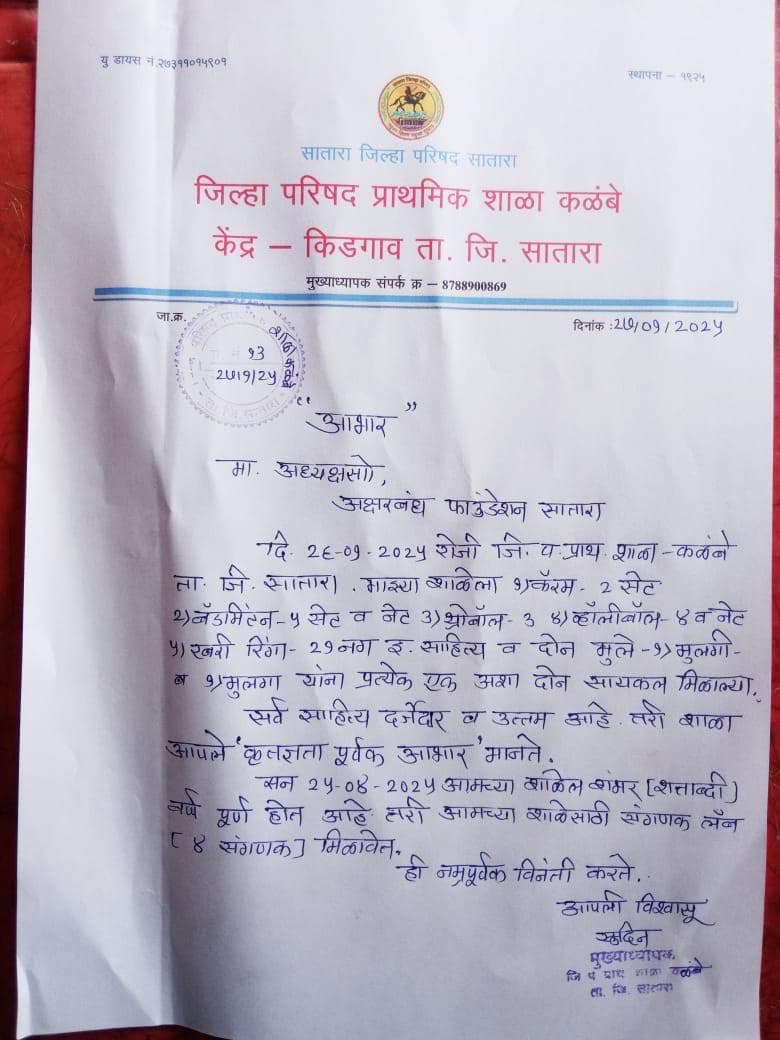 यु डायस नं.२७३११०१५९०१
स्थापना – १९२५
सातारा जिल्हा परिषद सातारा
जिल्हा परिषद प्राथमिक शाळा कळंबे
केंद्र – किडगाव ता. जि. सातारा
मुख्याध्यापक संपर्क क्र – 8788900869
जा.क्र.
दिनांक :२७/०१/२०२५
१३
"आभार"
मा. अध्यक्षसो,
अक्षरबंध फाउंडेशन सातारा
दि. २६-०१-२०२५ रोजी जि. प. प्राथ. शाळा-कळंबे
ता. जि. सातारा. माझ्या शाळेला १) कॅरम- २ सेट
२) बॅडमिंटन-५ सेट व नेट ३) थ्रोबॉल- ३ ४) व्हॉलीबॉल- ४ व नेट
५) रबरी रिंग- २१ नग इ. साहित्य व दोन मुले-१) मुलगी-
व १) मुलगा यांना प्रत्येक एक अशा दोन सायकल मिळाल्या.
सर्व साहित्य दर्जेदार व उत्तम आहे. तरी शाळा
आपले 'कृतज्ञता पूर्वक आभार' मानते.
सन २५-०४-२०२५ आमच्या शाळेल शंभर [शत्ताब्दी]
वर्ष पूर्ण होत आहे. तरी आमच्या शाळेसाठी संगणक लॅब
[४ संगणक] मिळावेत.
ही नम्रपूर्वक विनंती करते.
आपली विश्वासू
मुख्याध्यापक
जि प प्राथ शाळा कळंबे
ता. जि. सातारा